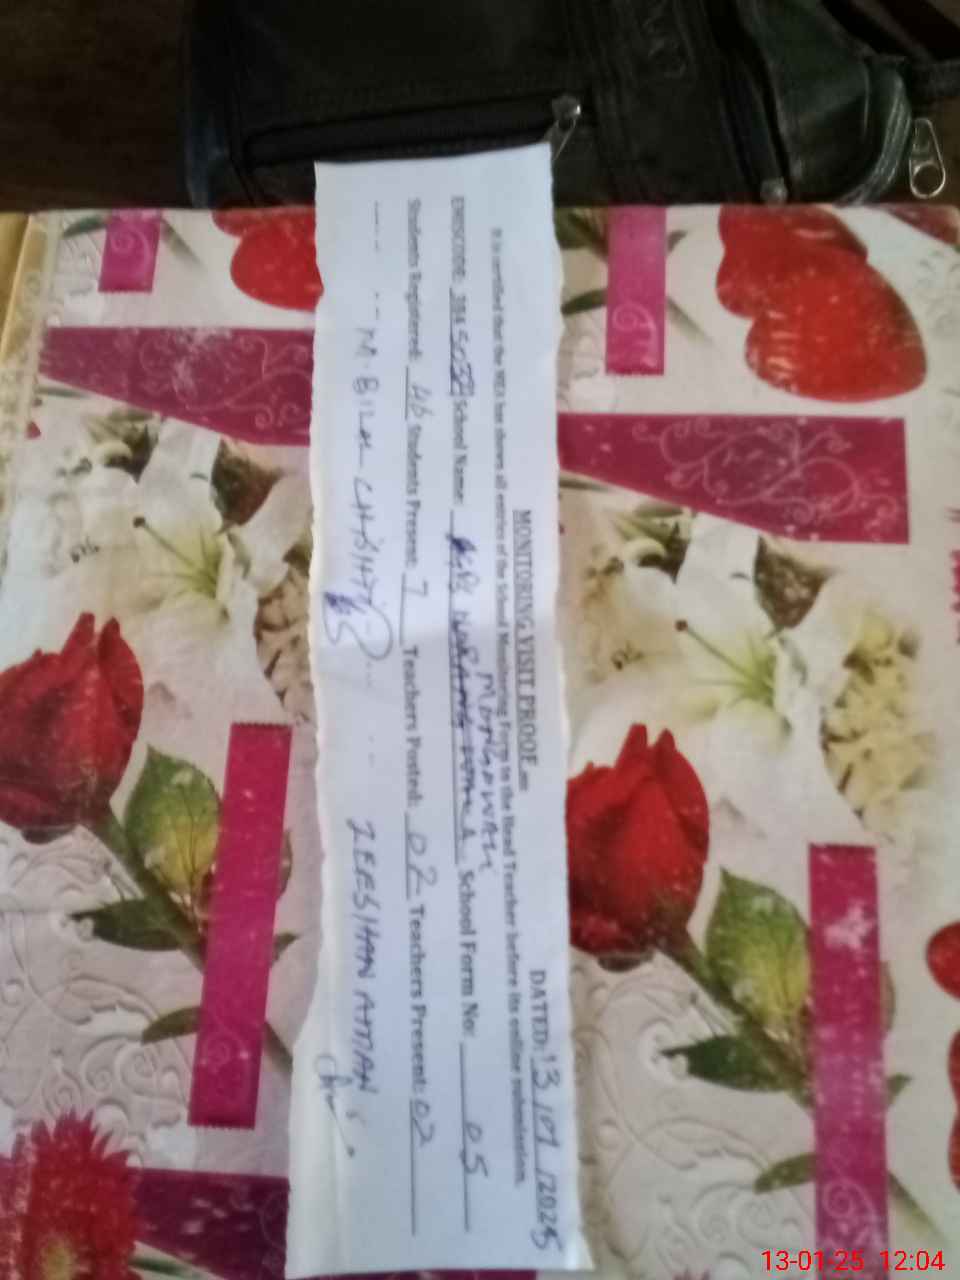 MONITORING VISIT PROOF
DATED: 13/01/2025
It is certified that the MEA has shown all entries of the School Monitoring Form to the Head Teacher before its online submission.
EMISCODE: 384 5032 School Name: School Form No: 05
Students Registered: 46 Students Present: 7 Teachers Posted: 02 Teachers Present: 02
M. BILAL CHISHTI ZEESHAN AMAN
13-01-25 12:04